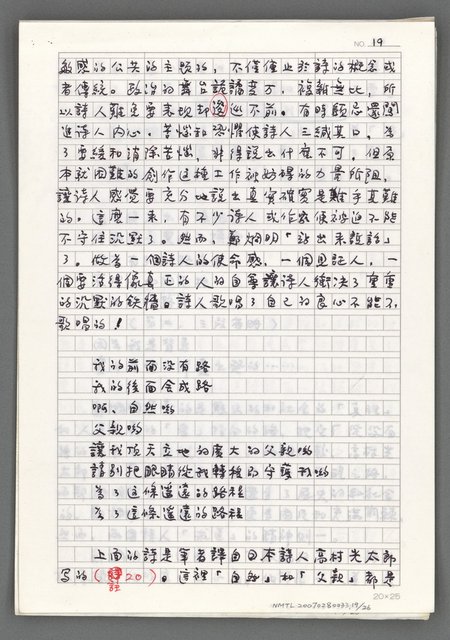 NO. 19
敏感的公共的主題的，不僅僅止於詩的概念或
者傳統。政治的舞台詭譎變方，複雜無比，所
以詩人難免要表現却逡巡不前。有時顧忌還闖
進詩人內心，苦惱和恐懼使詩人三緘其口。為
了要緩和消除苦惱，非得說出什麼不可。但原
本就困難的創作這種工作被妨礙的力量所阻，
讓詩人感覺要充分地說出真實確實是難乎其難
的。這麼一來，有不少詩人或作家便被迫不能
不守住沉默了。然而，鄭炯明「站出來說話」
了。做為一個詩人的使命感，一個見証人，一
個要活得像真正的人的自覺讓詩人衝決了重重
的沉默的鉄牆。詩人歌唱了自己的良心不能不
歌唱的！
我的前面没有路
我的後面會成路
啊，自然喲
父親喲
讓我頂天立地的廣大的父親喲
請別把眼睛從我轉移而守護我喲
為了這條遙遠的路程
為了這條遙遠的路程
上面的詩是筆者譯自日本詩人高村光太郎
寫的（註20）。這裡「自然」和「父親」都是
20×25
NMTL20070280033;19/26